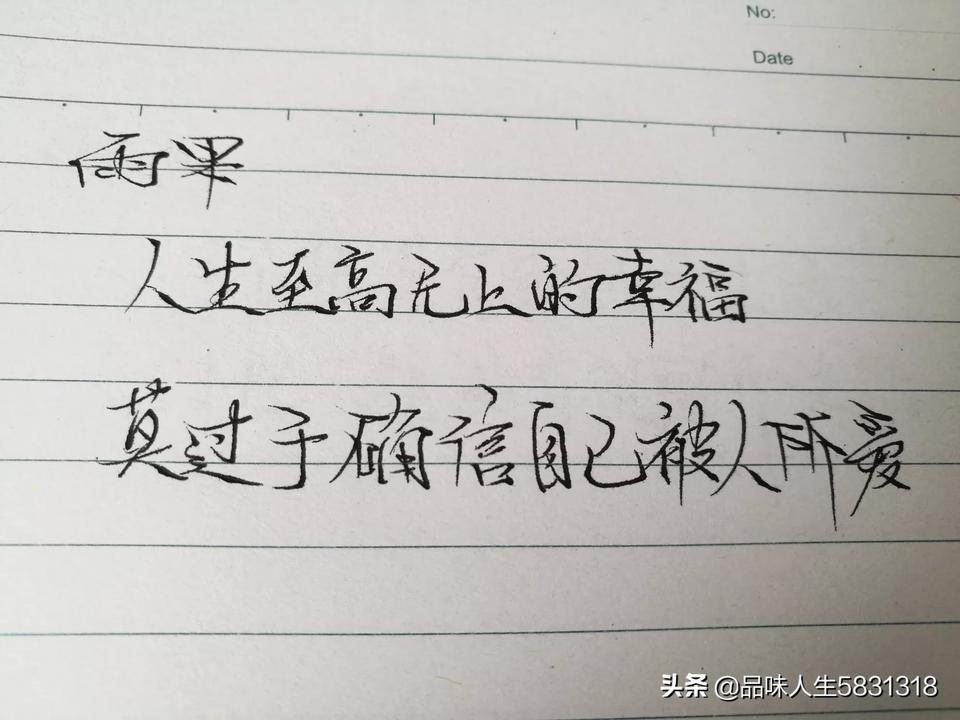 No:
Date
雨果
人生至高无上的幸福
莫过于确信自己被人所爱
头条 @品味人生5831318